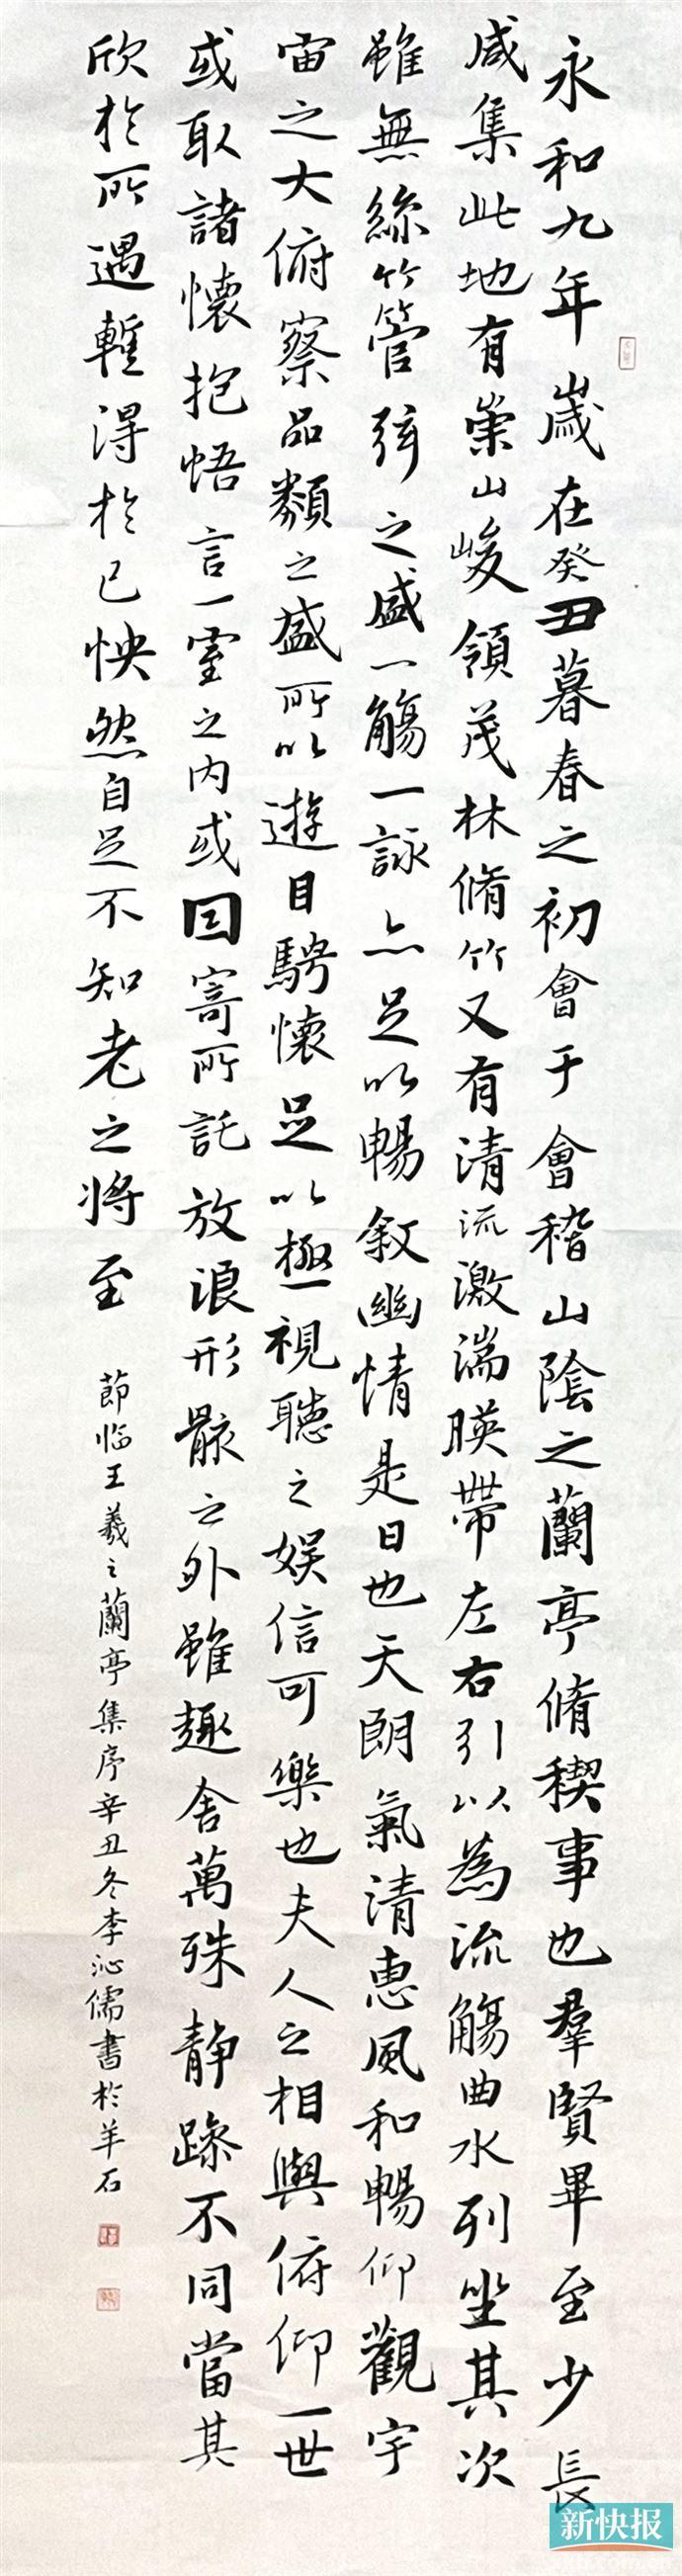 永和九年歲在癸丑暮春之初會于會稽山陰之蘭亭脩稧事也羣賢畢至少長
咸集此地有崇山峻領茂林脩竹又有清流激湍暎帶左右引以為流觴曲水列坐其次
雖無絲竹管弦之盛一觴一詠亦足以暢敘幽情是日也天朗氣清惠風和暢仰觀宇
宙之大俯察品類之盛所以遊目騁懷足以極視聽之娛信可樂也夫人之相與俯仰一世
或取諸懷抱悟言一室之內或因寄所託放浪形骸之外雖趣舍萬殊靜躁不同當其
欣於所遇暫得於己怏然自足不知老之將至
節临王羲之蘭亭集序辛丑冬李沁儒書於羊石
新快报